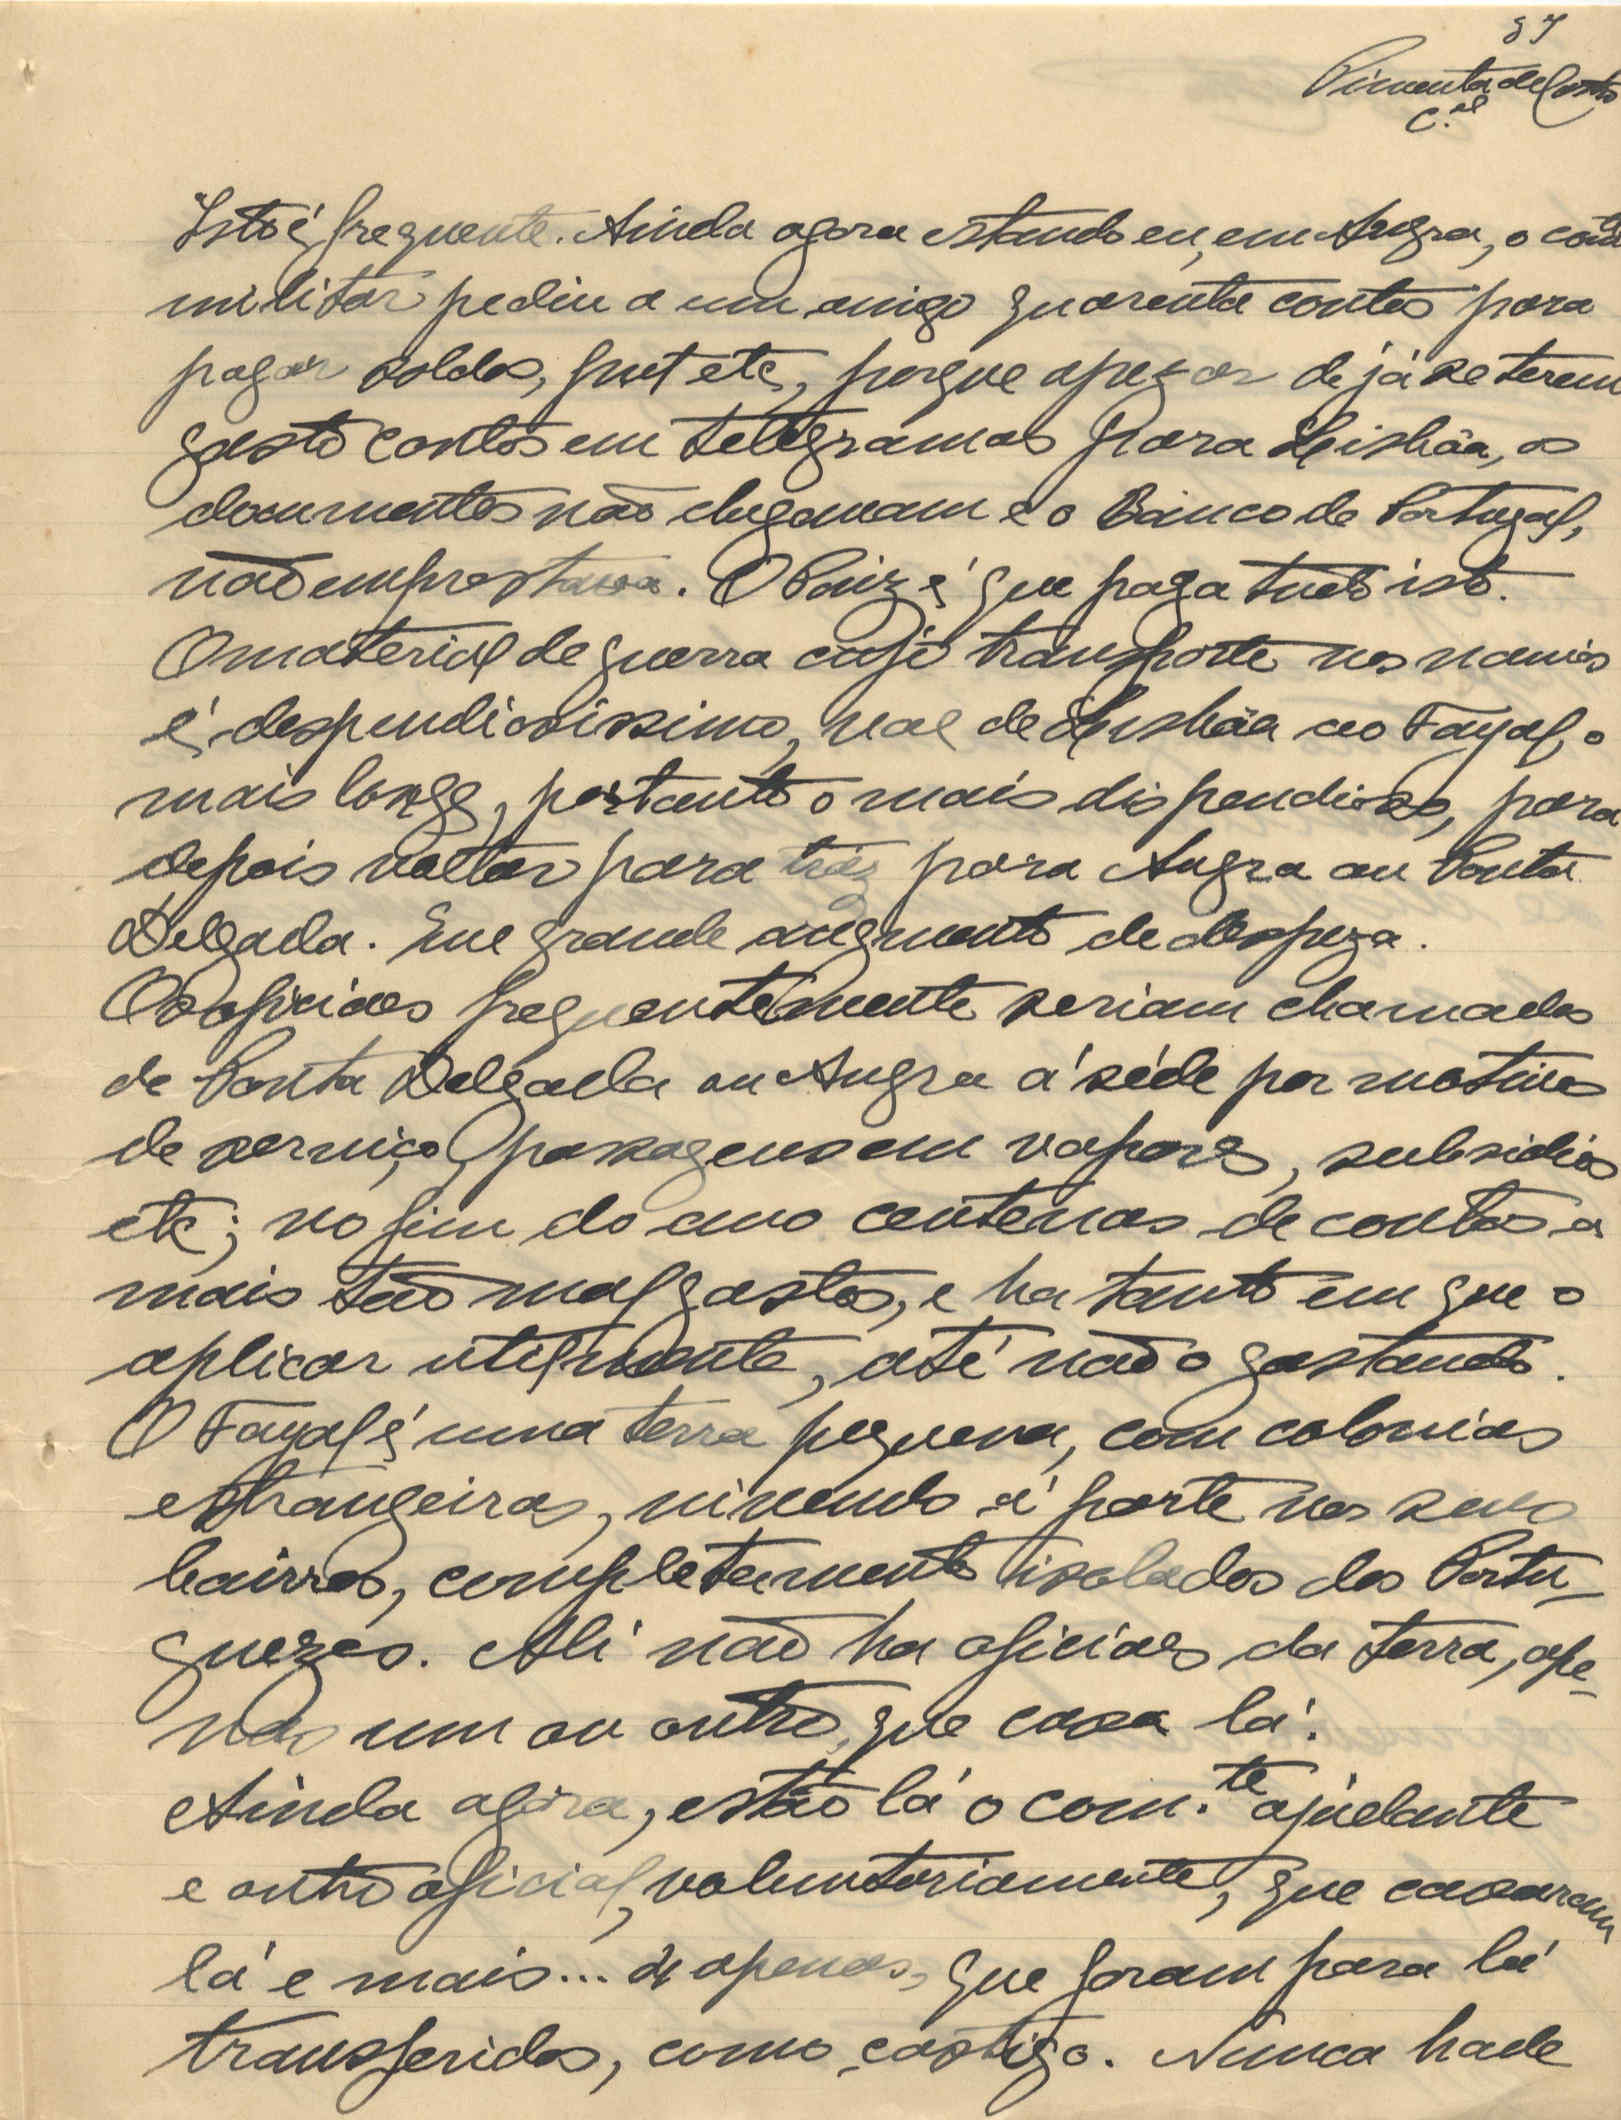 87
Pimenta de Castro
C.el
Isto é frequente. Ainda agora estando eu, em Angra, o com.do
militar pediu a um amigo quarenta contos para
pagar soldos, pret etc, porque apezar de já se terem
gasto contos em telegramas para Lisbôa, os
documentos não chegavam e o Banco de Portugal,
não emprestava. O Paiz é que paga tudo isto.
O material de guerra cujo transporte nos navios
é despendiosissimo, vae de Lisbôa ao Fayal, o
mais longe, portanto o mais dispendioso, para
depois voltar para traz para Angra ou Ponta
Delgada. Que grande augmento de despeza.
Os oficiaes frequentemente seriam chamados
de Ponta Delgada ou Angra á séde por motivos
de serviço, passagens em vapores, subsidios
etc; no fim do ano centenas de contos a
mais tão mal gastos, e ha tanto em que o
aplicar utilmente, até não o gastando.
O Fayal é uma terra pequena, com colonias
estrangeiras, vivendo á parte nos seus
bairros, completamente isolados dos Portu-
guezes. Ali não ha oficiaes da terra, ape-
nas um ou outro, que casa lá.
Ainda agora, estão lá o com.te ajudante
e outro oficial, voluntariamente, que casaram
lá e mais... 4 apenas, que foram para lá
transferidos, como castigo. Nunca hade